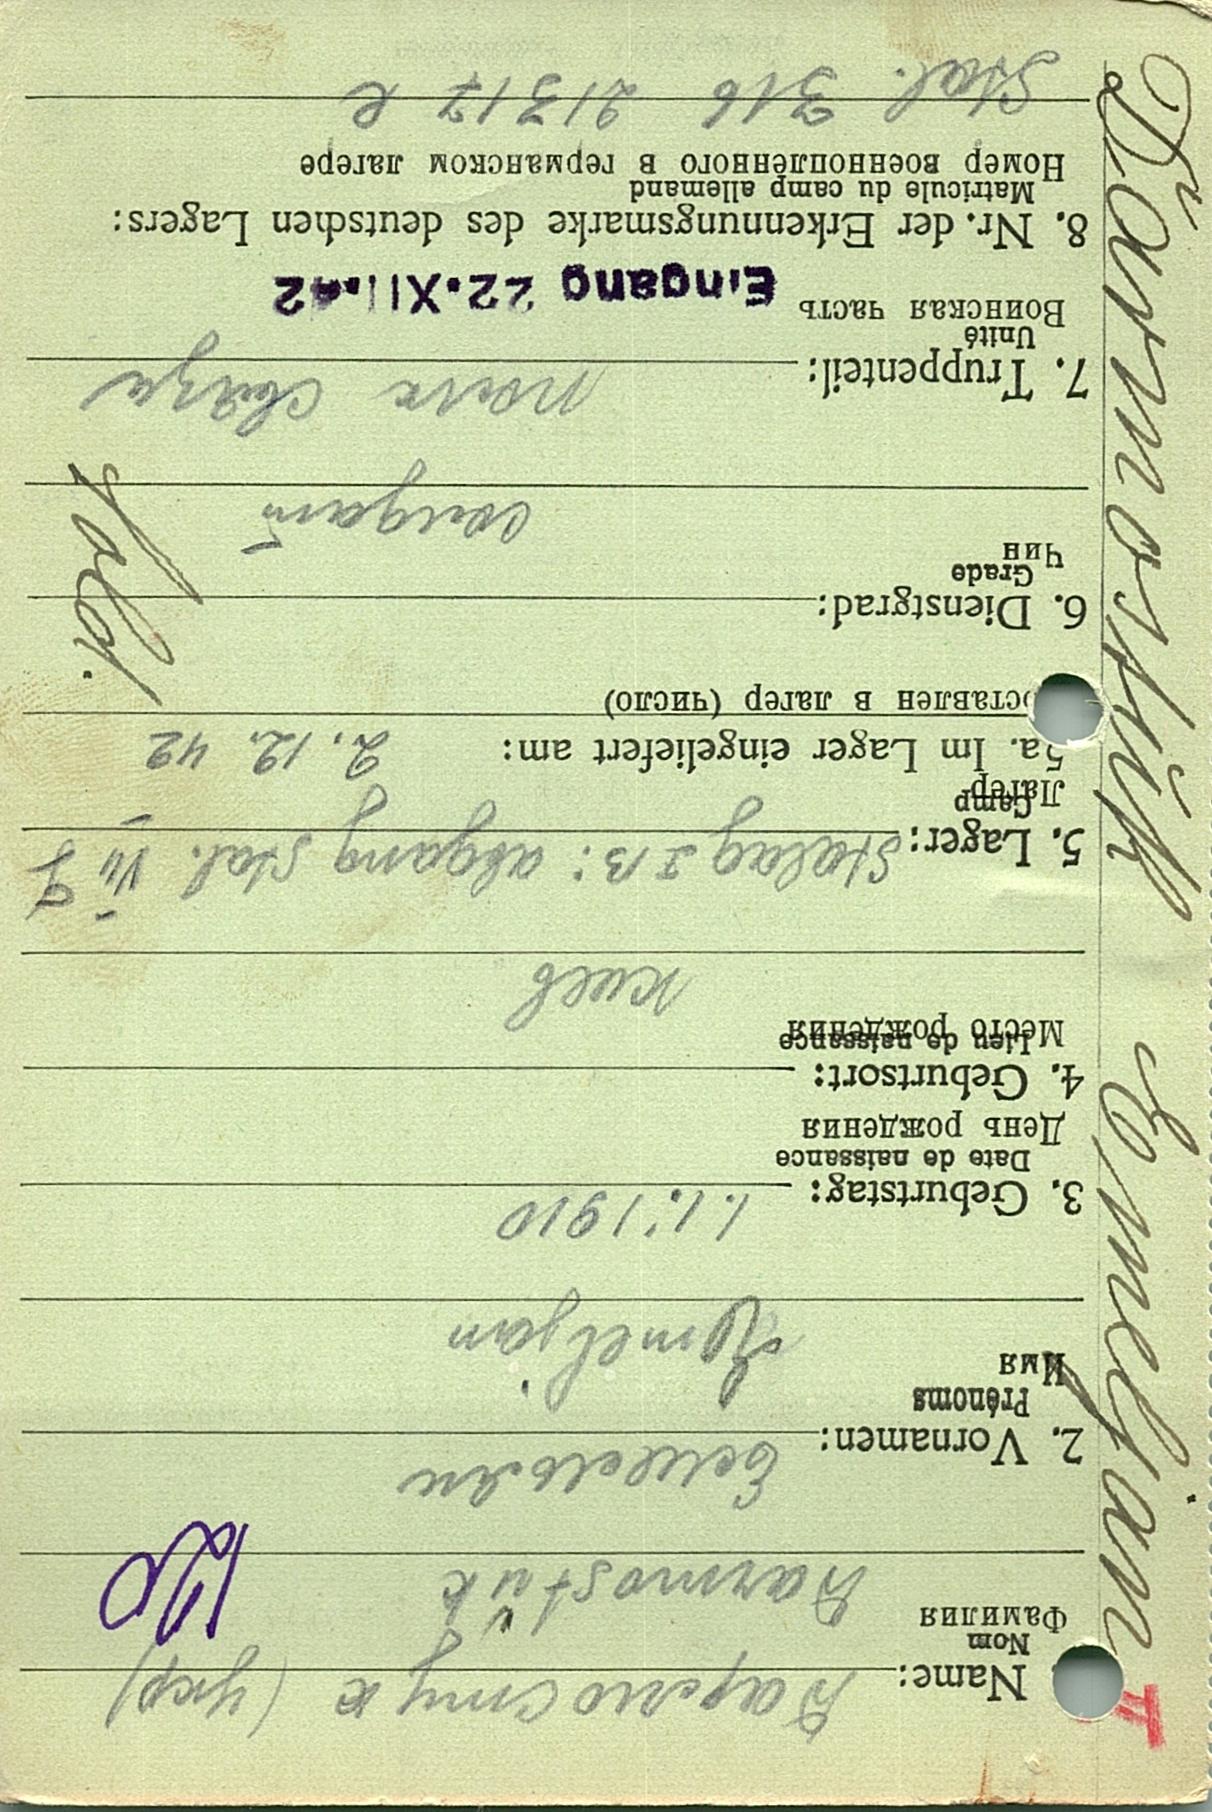 II
Därmostük Eomeljan
Name:
Nom
Фамилия
Дармостук (укр)
Darmostük
2. Vornamen:
Prénoms
Имя
Емельян
Eomeljan
3. Geburtstag: 1.1.1910
Date de naissance
День рождения
4. Geburtsort:
Lieu de naissance
Место рождения
Киев
5. Lager: Stalag I B: abgang Stal. VII
Camp
Лагерь
5a. Im Lager eingeliefert am: 2.12.42
оставлен в лагер (число)
6. Dienstgrad:
Grade
Чин
солдат
Sold.
7. Truppenteil: полк связи
Unité
Воинская часть
Eingang 22.XII.42
8. Nr. der Erkennungsmarke des deutschen Lagers:
Matricule du camp allemand
Номер военнопленного в германском лагере
Stal. 316 21317